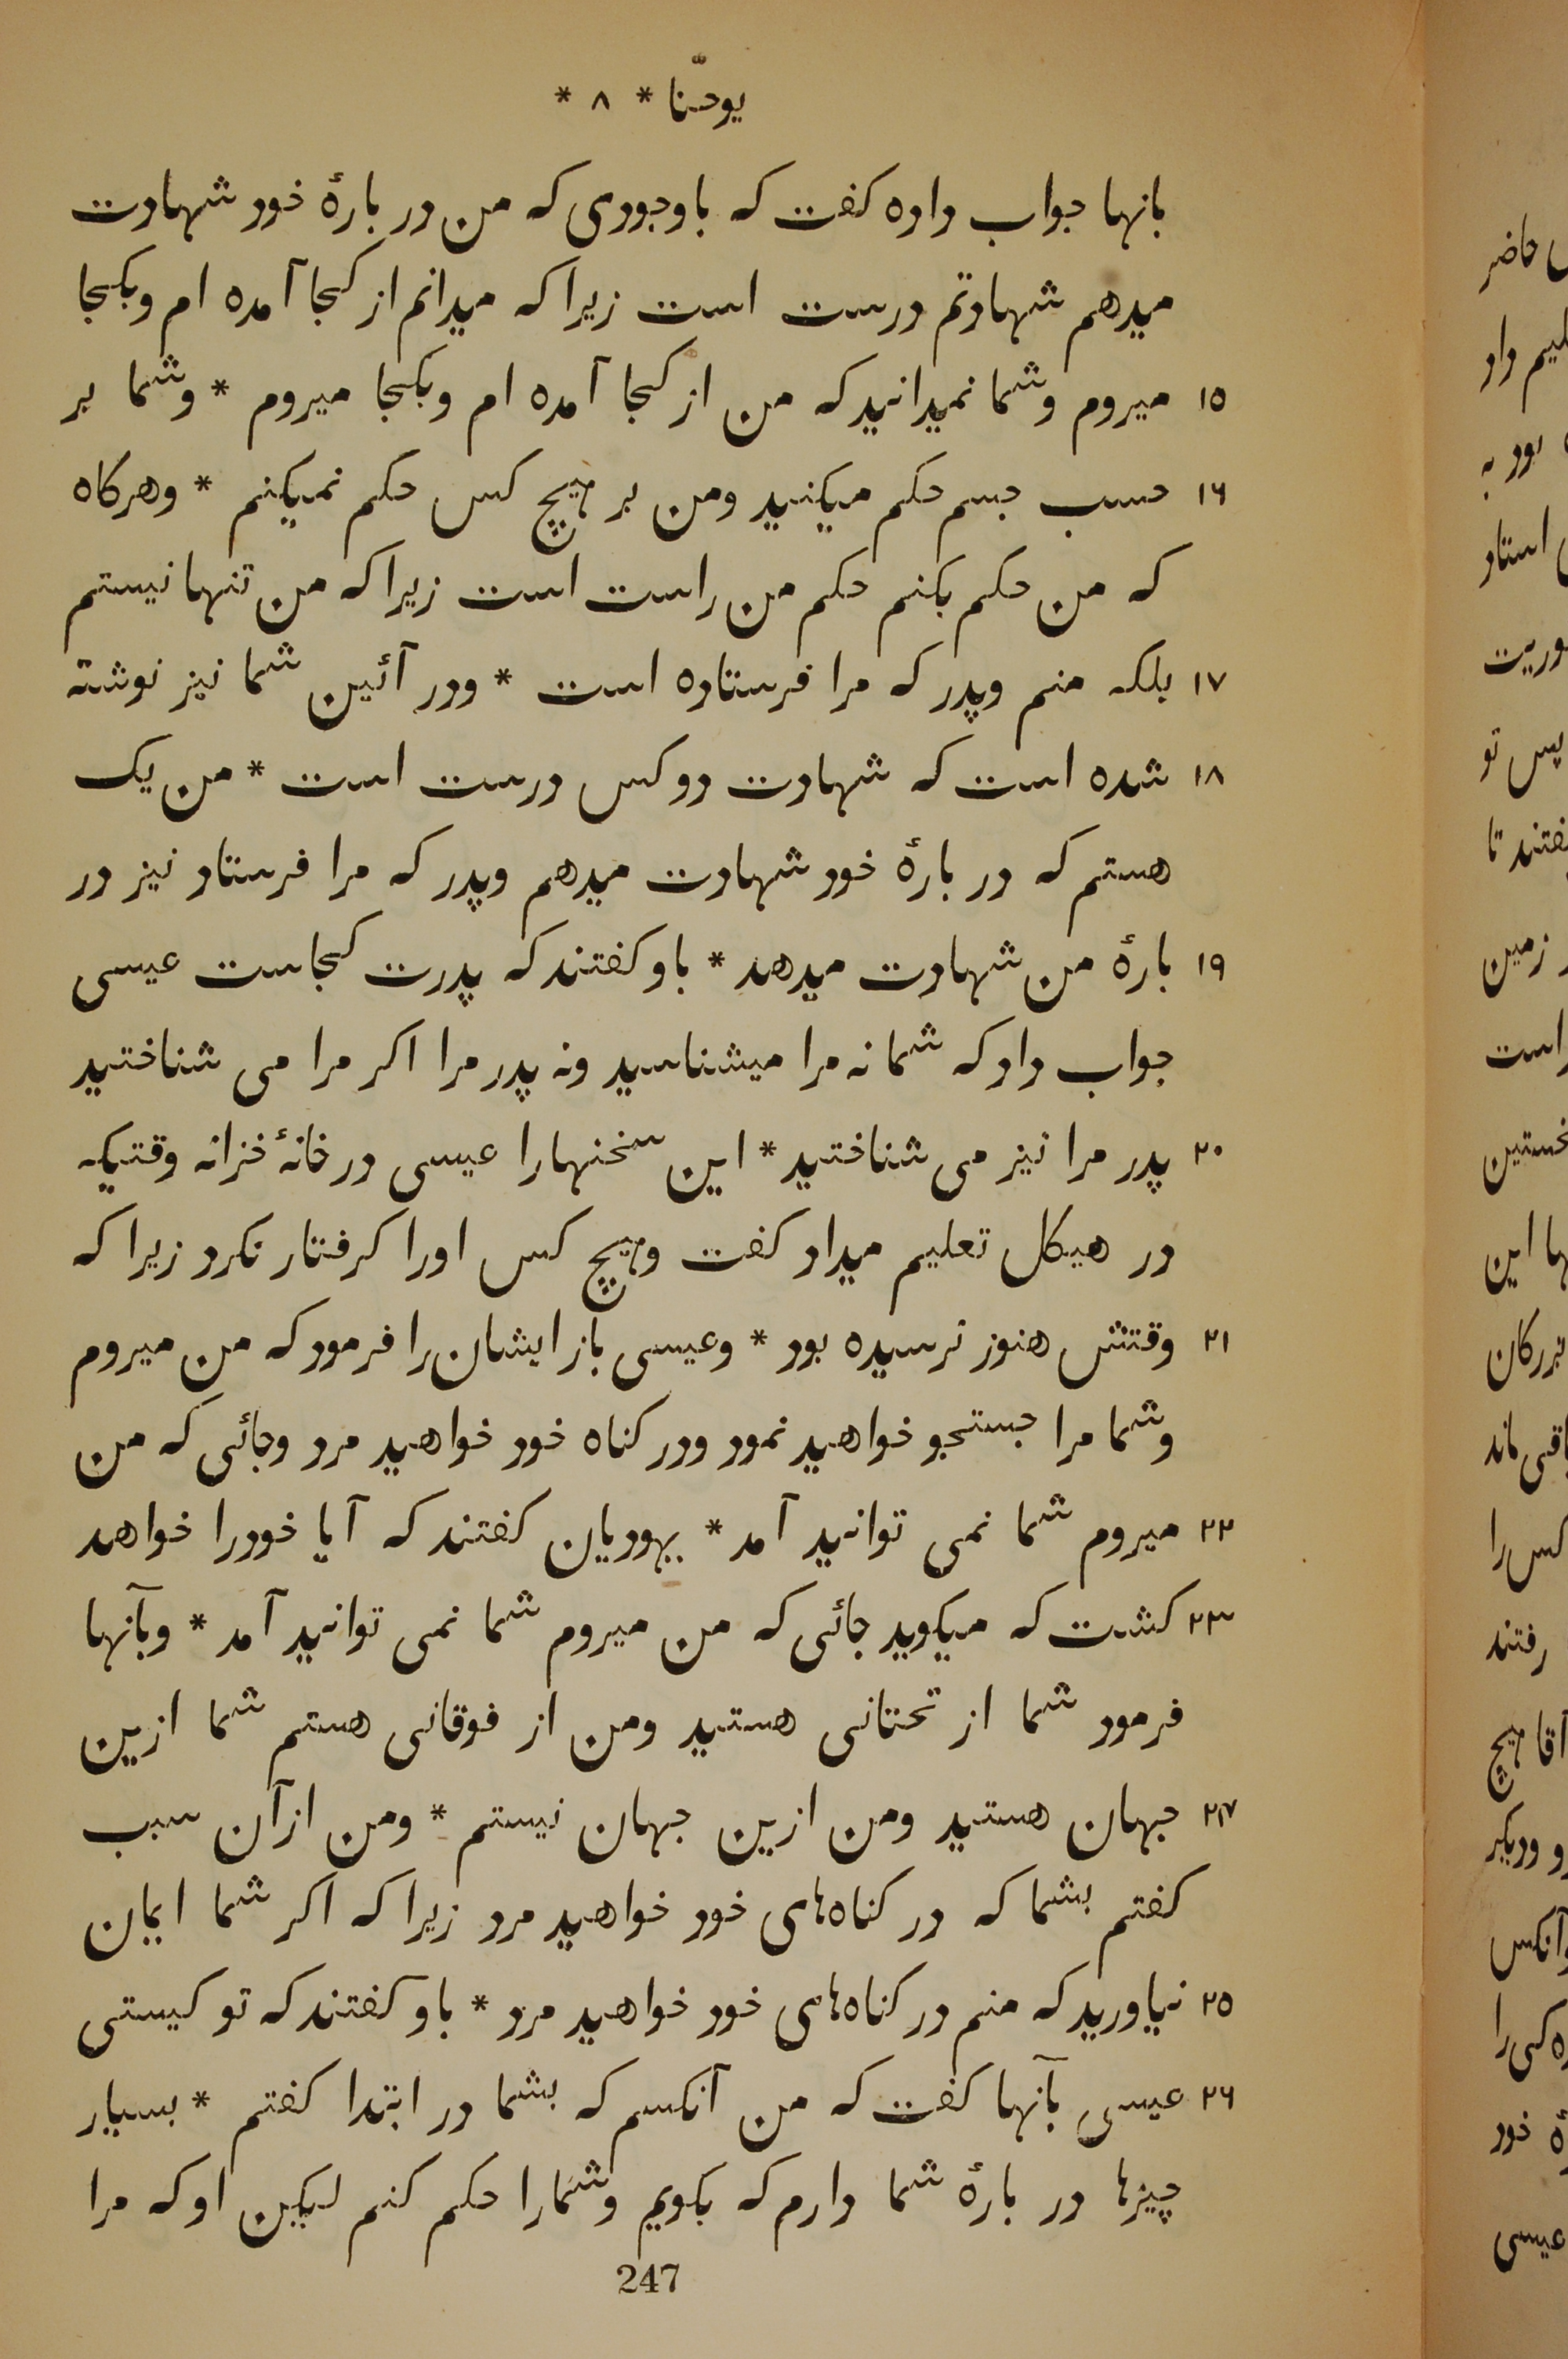 یوحنّا * ۸ *
بانها جواب داده كفت كه باوجودی كه من در بارهٔ خود شهادت
میدهم شهادتم درست است زیرا كه میدانم از كجا آمده ام وبكجا
۱۵ میروم وشما نمیدانید كه من از كجا آمده ام وبكجا میروم * وشما بر
۱۶ حسب جسم حكم میكنید ومن بر هیچ كس حكم نمیكنم * وهركاه
كه من حكم بكنم حكم من راست است زیرا كه من تنها نیستم
۱۷ بلكه منم وپدر كه مرا فرستاده است * ودر آئین شما نیز نوشته
۱۸ شده است كه شهادت دو كس درست است * من یک
هستم كه در بارهٔ خود شهادت میدهم وپدر كه مرا فرستاد نیز در
۱۹ بارهٔ من شهادت میدهد * باو كفتند كه پدرت كجاست عیسی
جواب داد كه شما نه مرا میشناسید ونه پدر مرا اكر مرا می شناختید
۲۰ پدر مرا نیز می شناختید * این سخنهارا عیسی در خانهٔ خزانه وقتیكه
در هیكل تعلیم میداد كفت وهیچ كس اورا كرفتار نكرد زیرا كه
۲۱ وقتش هنوز نرسیده بود * وعیسی باز ایشان را فرمود كه من میروم
وشما مرا جستجو خواهید نمود ودر كناه خود خواهید مرد وجائی كه من
۲۲ میروم شما نمی توانید آمد * یهودیان كفتند كه آیا خودرا خواهد
۲۳ كشت كه میكوید جائی كه من میروم شما نمی توانید آمد * وبآنها
فرمود شما از تحتانی هستید ومن از فوقانی هستم شما ازین
۲۴ جهان هستید ومن ازین جهان نیستم * ومن ازآن سبب
كفتم بشما كه در كناه‌های خود خواهید مرد زیرا كه اكر شما ایمان
۲۵ نیاورید كه منم در كناه‌های خود خواهید مرد * باو كفتند كه تو كیستی
۲۶ عیسی بآنها كفت كه من آنكسم كه بشما در ابتدا كفتم * بسیار
چیزها در بارهٔ شما دارم كه بكویم وشمارا حكم كنم لیكین او كه مرا
247
حاضر
داد
بود به
استاد
پس تو
زمین
است
این
كس را
رفتند
هیچ
خود
عیسی